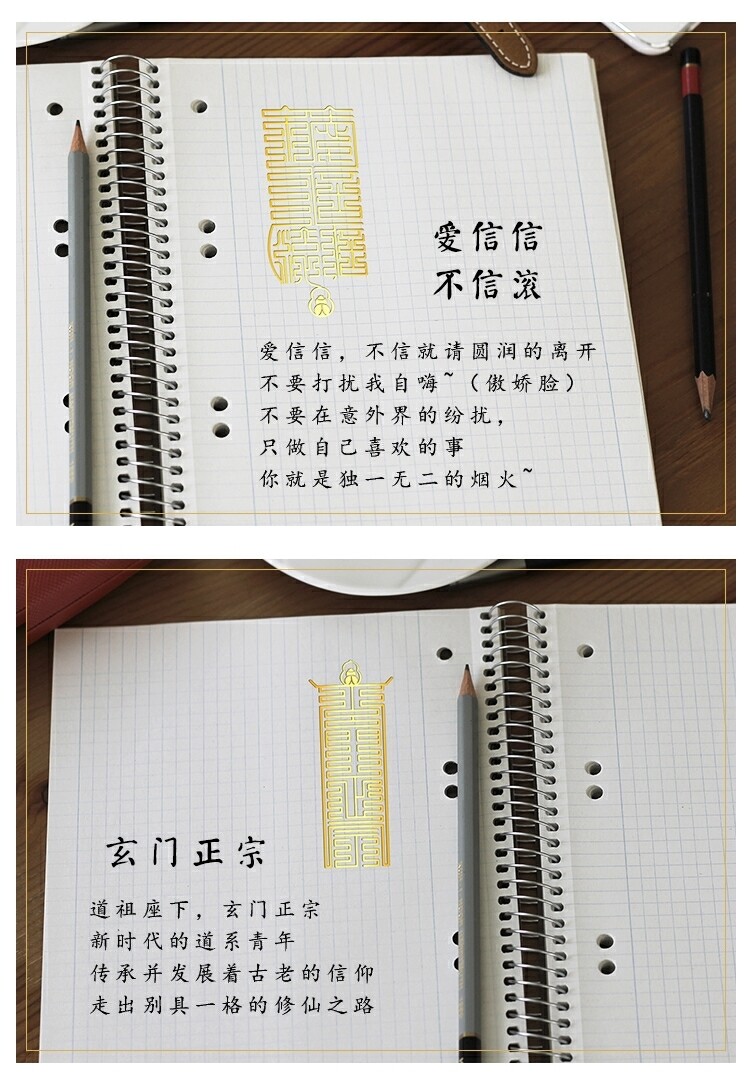 爱信信
不信滚
爱信信，不信就请圆润的离开
不要打扰我自嗨~（傲娇脸）
不要在意外界的纷扰，
只做自己喜欢的事
你就是独一无二的烟火~
玄门正宗
道祖座下，玄门正宗
新时代的道系青年
传承并发展着古老的信仰
走出别具一格的修仙之路